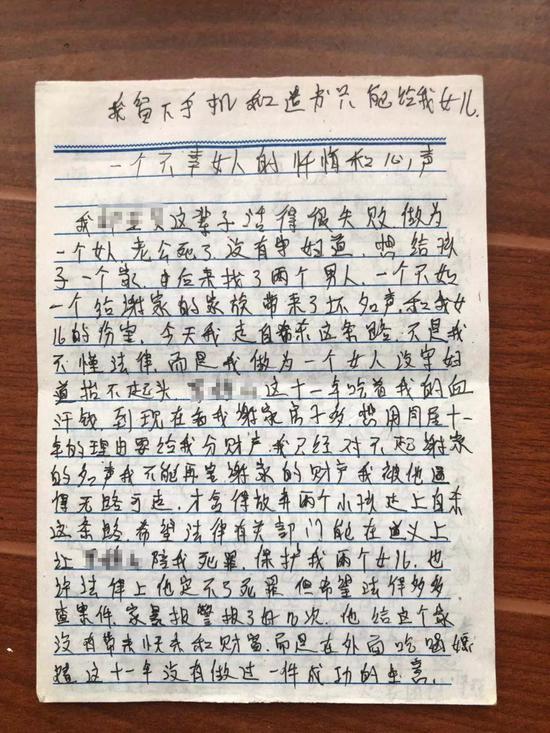 我留下手机和遗书只能给我女儿.
一个不幸女人的忏悔和心声
我 这辈子活得很失败做为
一个女人,老公死了,没有守妇道,想给孩
子一个家,中后来找了两个男人,一个不如
一个给谢家的家族带来了坏名声,和我女
儿的伤害,今天我走自杀这条路,不是我
不懂法律,而是我做为一个女人没守妇
道抬不起头, 这十一年吃着我的血
汗钱,到现在看我谢家房子多,想用同居十一
年的理由要给我分财产,我已经对不起谢家
的名声我不能再害谢家的财产我被他逼
得无路可走,才舍得放弃两个小孩走上自杀
这条路,希望法律有关部门能在道义上
让 陪我死罪,保护我两个女儿,也
许法律上他定不了死罪,但希望法律多多
查案件,家暴报警报了好几次,他给这个家
没有带来快乐和财富,而是在外面吃喝嫖
赌,这十一年没有做过一件成功的生意.